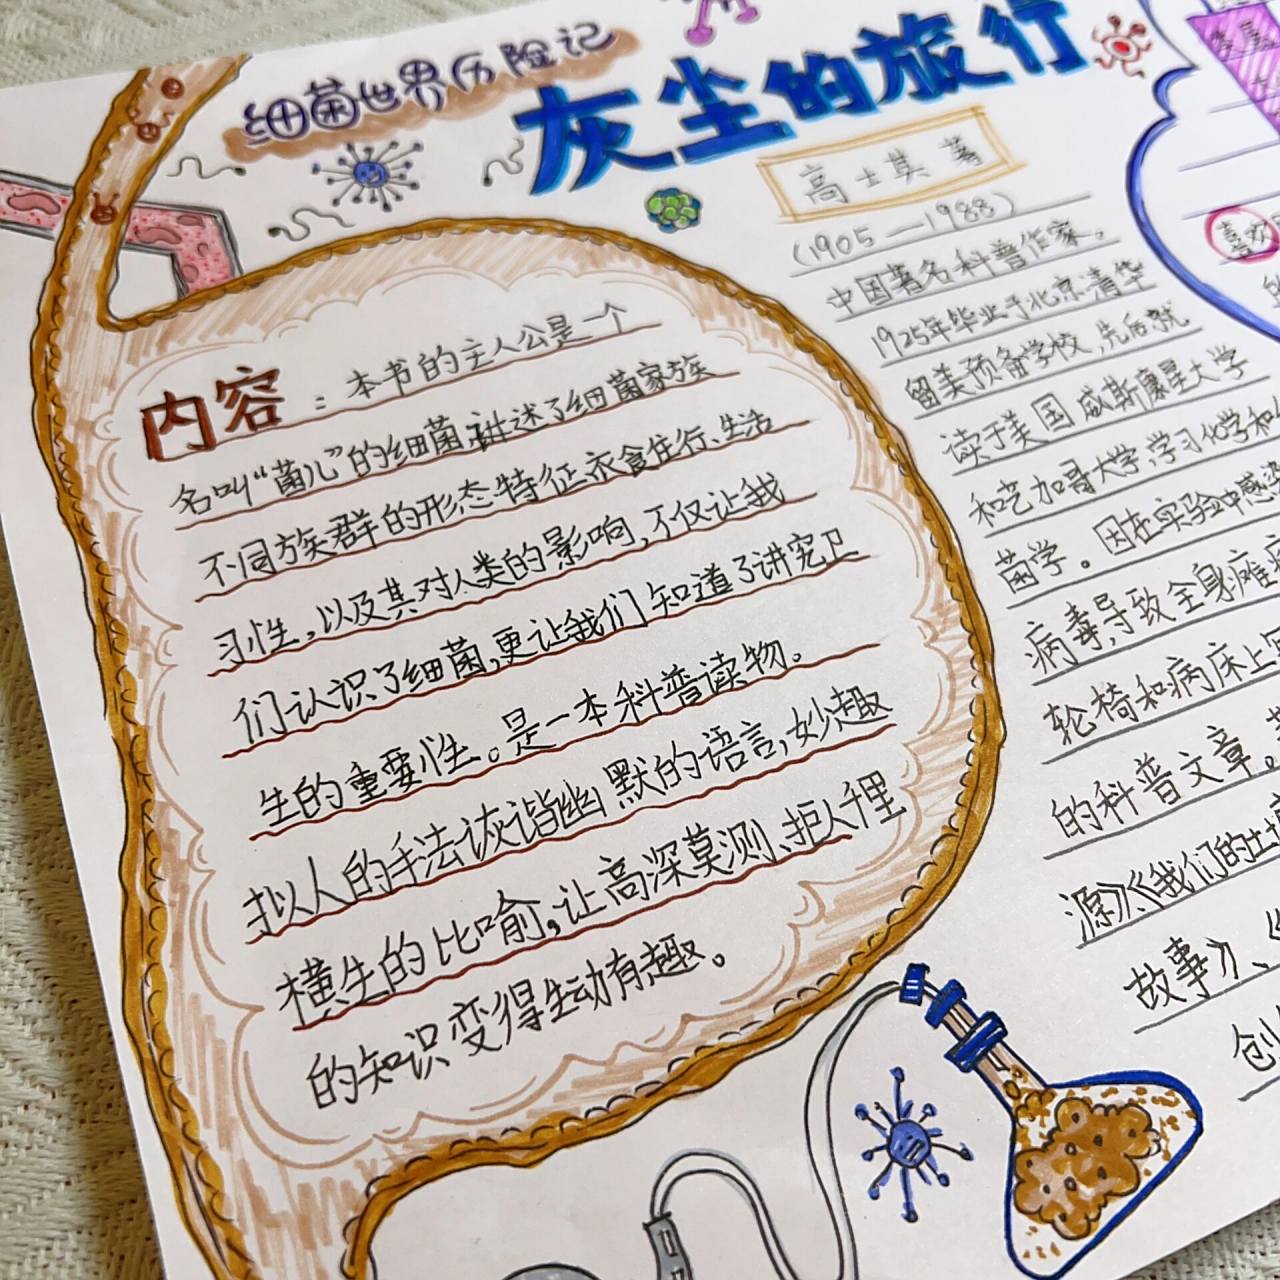 细菌世界历险记
灰尘的旅行
高士其 著
(1905—1988)
中国著名科普作家。
1925年毕业于北京清华
留美预备学校,先后就
读于美国威斯康星大学
和芝加哥大学,学习化学和
菌学。因在实验中感染
病毒,导致全身瘫痪
轮椅和病床上
的科普文章。
源》《我们的土
故事》、《
创
内容:本书的主人公是一个
名叫“菌儿”的细菌,讲述了细菌家族
不同族群的形态特征、衣食住行、生活
习性,以及其对人类的影响,不仅让我
们认识了细菌,更让我们知道了讲究卫
生的重要性。是一本科普读物。
拟人的手法诙谐幽默的语言,妙趣
横生的比喻,让高深莫测、拒人千里
的知识变得生动有趣。
喜欢